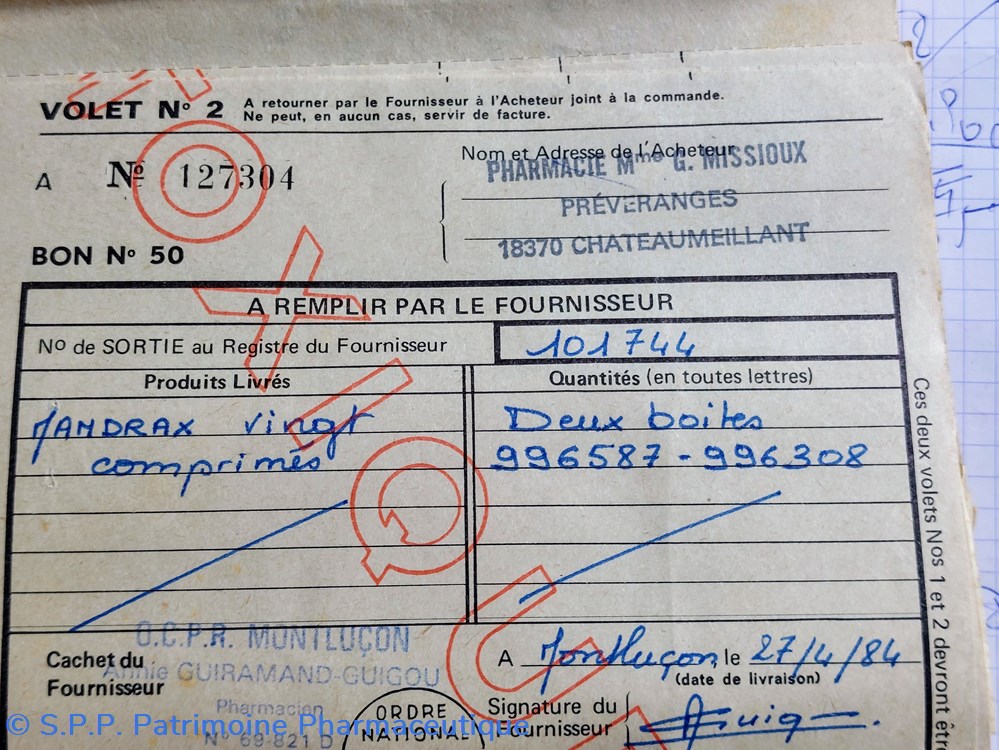 VOLET No 2 A retourner par le Fournisseur à l'Acheteur joint à la commande.
Ne peut, en aucun cas, servir de facture.
A No 127304
Nom et Adresse de l'Acheteur
PHARMACIE Mme G. MISSIOUX
PRÉVERANGES
18370 CHATEAUMEILLANT
BON No 50
A REMPLIR PAR LE FOURNISSEUR
No de SORTIE au Registre du Fournisseur 101744
Produits Livrés Quantités (en toutes lettres)
MANDRAX vingt Deux boites
comprimés 996587 - 996308
Ces deux volets Nos 1 et 2 devront être
O.C.P.R. MONTLUÇON
Annie GUIRAMAND-GUIGOU
Pharmacien
No 69-821 D
Cachet du
Fournisseur
ORDRE
NATIONAL
A Montluçon, le 27/4/84
(date de livraison)
Signature du
Fournisseur
TOXIQUE
© S.P.P. Patrimoine Pharmaceutique